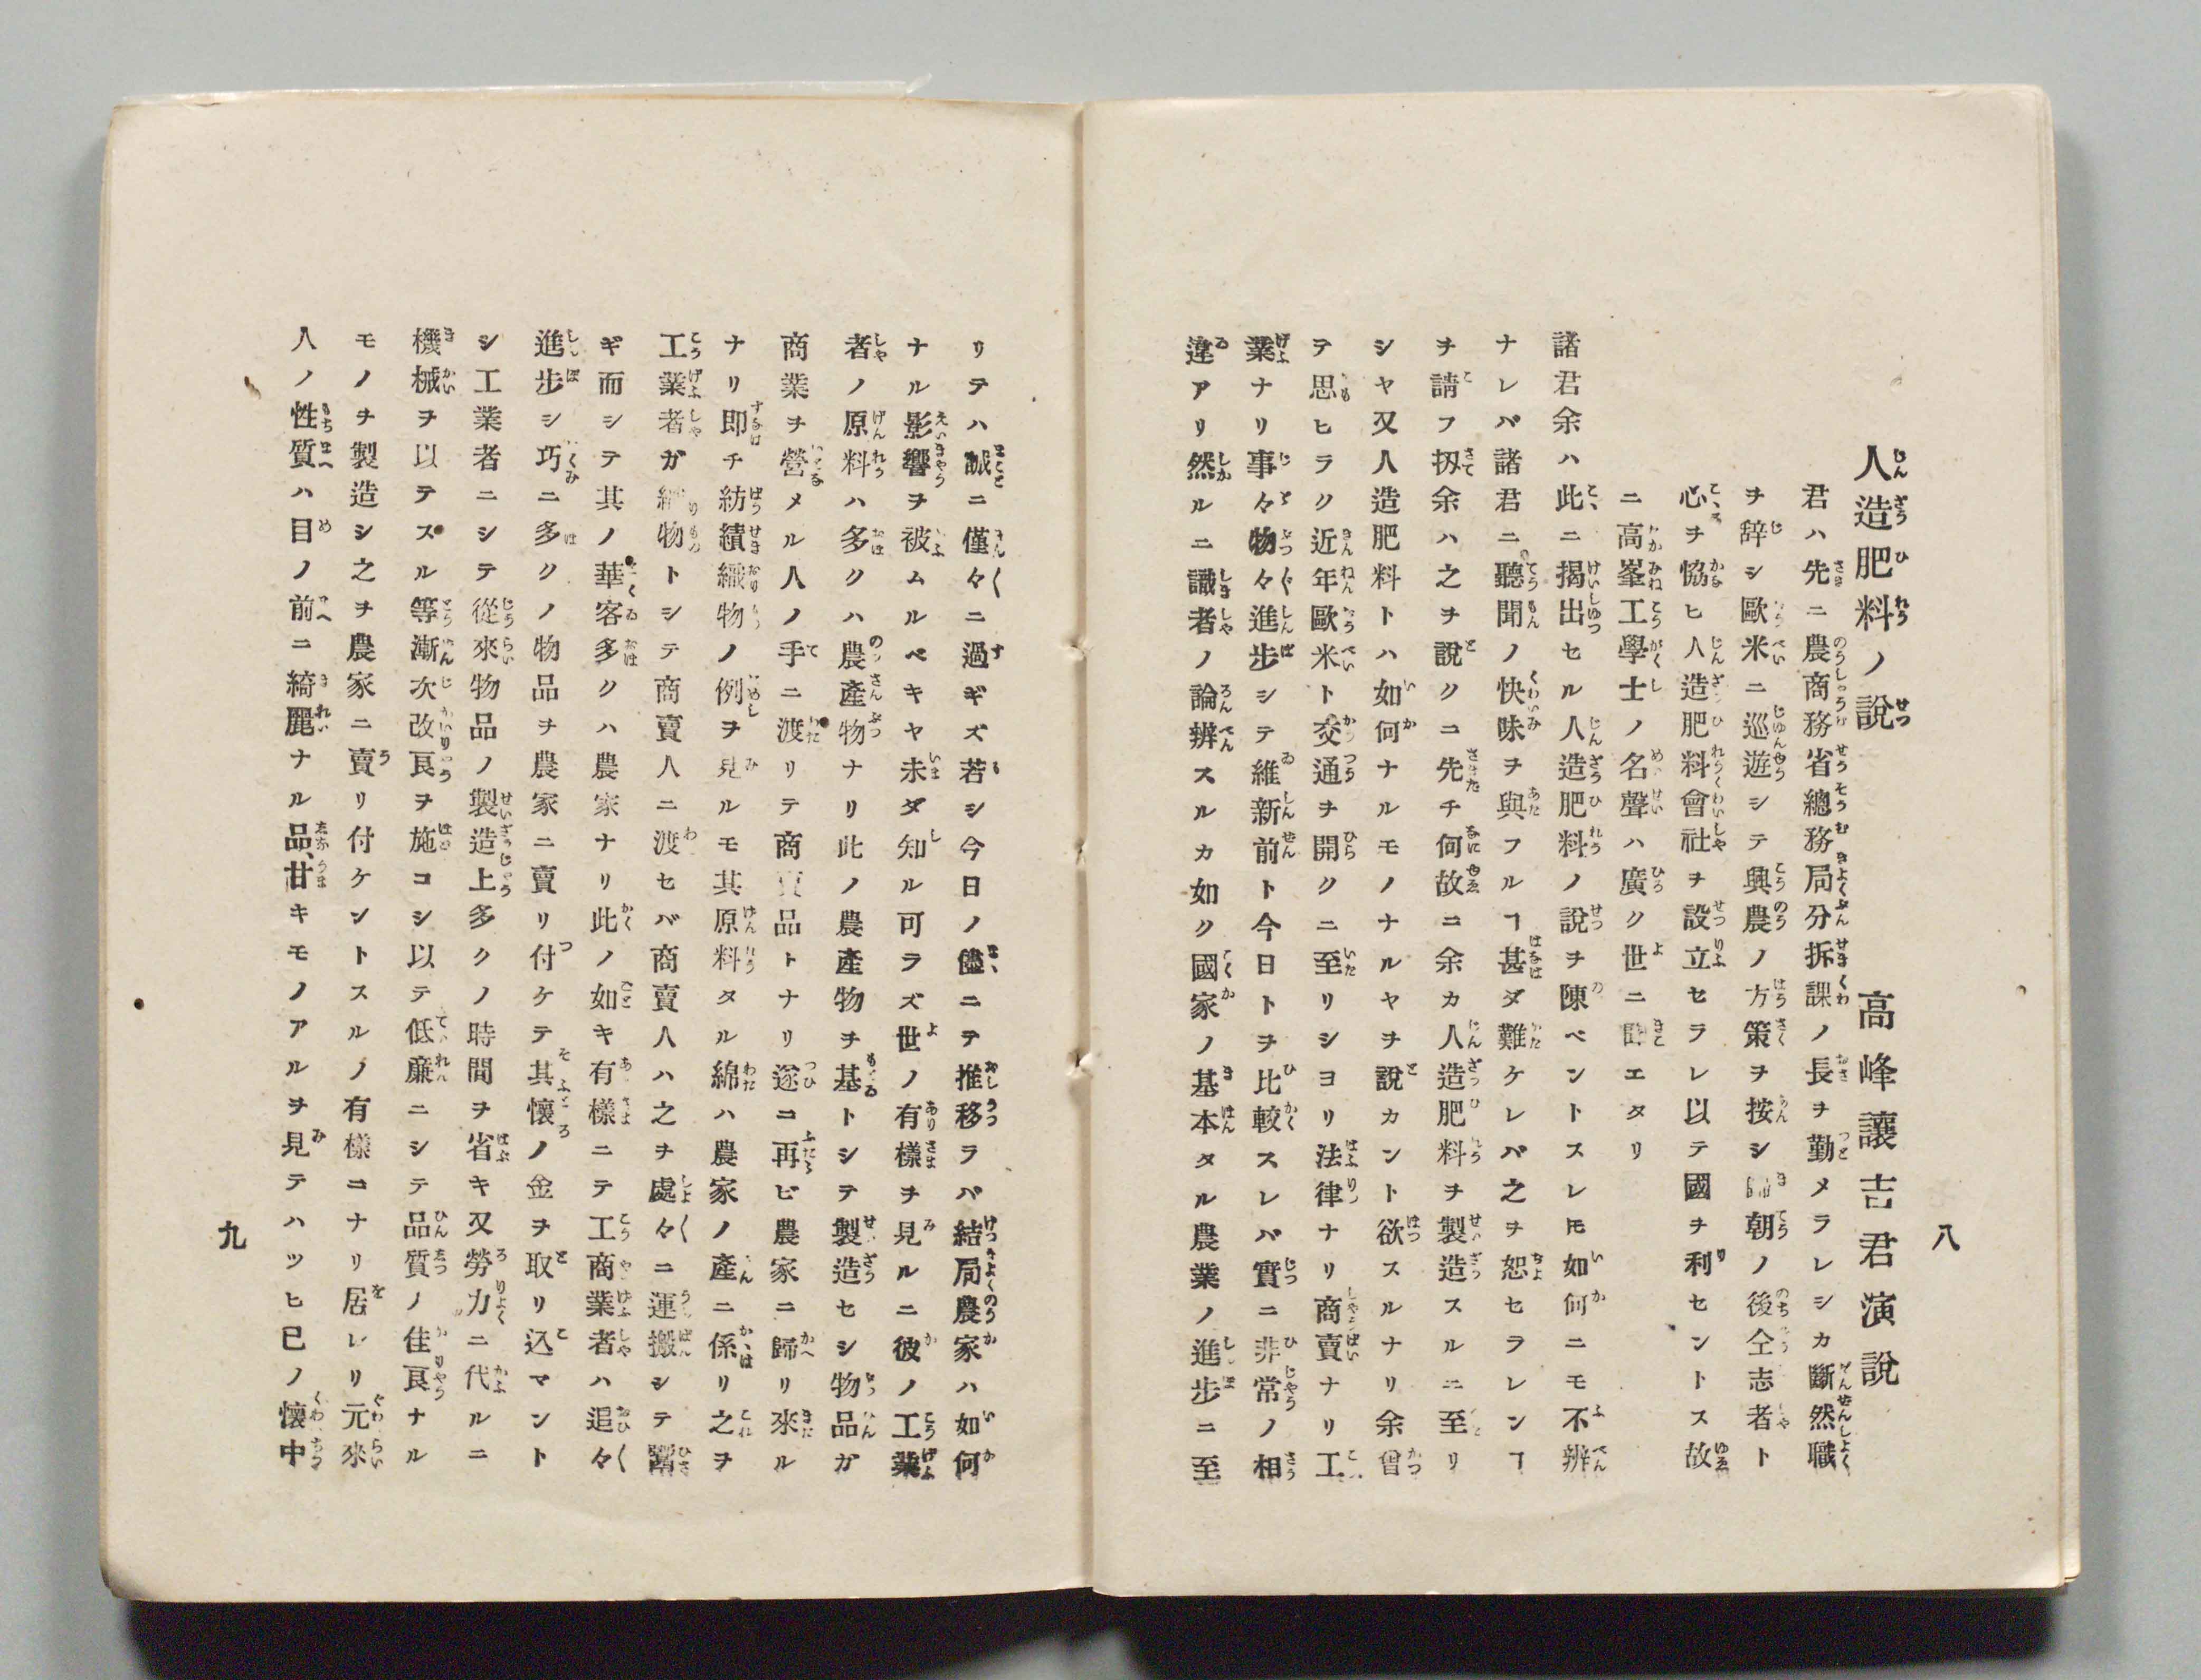 人造肥料ノ說
高峰讓吉君演說
君ハ先ニ農商務省總務局分拆課ノ長ヲ勤メラレシカ斷然職
ヲ辞シ歐米ニ巡遊シテ興農ノ方策ヲ按シ歸朝ノ後仝志者ト
心ヲ恊ヒ人造肥料會社ヲ設立セラレ以テ國ヲ利セントス故
ニ高峯工學士ノ名聲ハ廣ク世ニ聞エタリ
諸君余ハ此ニ揭出セル人造肥料ノ說ヲ陳ベントスレ𪜈如何ニモ不辨
ナレバ諸君ニ聽聞ノ快味ヲ與フルヿ甚ダ難ケレバ之ヲ恕セラレンヿ
ヲ請フ扨余ハ之ヲ說クニ先チ何故ニ余カ人造肥料ヲ製造スルニ至リ
シヤ又人造肥料トハ如何ナルモノナルヤヲ說カント欲スルナリ余曾
テ思ヒラク近年歐米ト交通ヲ開クニ至リシヨリ法律ナリ商賣ナリ工
業ナリ事々物々進步シテ維新前ト今日トヲ比較スレバ實ニ非常ノ相
違アリ然ルニ識者ノ論辨スルカ如ク國家ノ基本タル農業ノ進步ニ至
八
リテハ誠ニ僅々ニ過ギズ若シ今日ノ儘ニテ推移ラバ結局農家ハ如何
ナル影響ヲ被ムルベキヤ未ダ知ル可ラズ世ノ有樣ヲ見ルニ彼ノ工業
者ノ原料ハ多クハ農產物ナリ此ノ農產物ヲ基トシテ製造セシ物品ガ
商業ヲ營メル人ノ手ニ渡リテ商賣品トナリ逐ニ再ビ農家ニ歸リ來ル
ナリ即チ紡績織物ノ例ヲ見ルモ其原料タル綿ハ農家ノ產ニ係リ之ヲ
工業者ガ織物トシテ商賣人ニ渡セバ商賣人ハ之ヲ處々ニ運搬シテ鬻
ギ而シテ其ノ華客多クハ農家ナリ此ノ如キ有樣ニテ工商業者ハ追々
進步シ巧ニ多クノ物品ヲ農家ニ賣リ付ケテ其懷ノ金ヲ取リ込マント
シ工業者ニシテ從來物品ノ製造上多クノ時間ヲ省キ又勞力ニ代ルニ
機械ヲ以テスル等漸次改良ヲ施コシ以テ低廉ニシテ品質ノ佳良ナル
モノヲ製造シ之ヲ農家ニ賣リ付ケントスルノ有樣ニナリ居レリ元來
人ノ性質ハ目ノ前ニ綺麗ナル品、甘キモノアルヲ見テハツヒ已ノ懷中
九